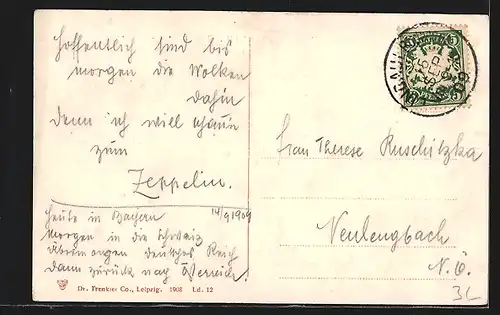 Hoffentlich sind bis
morgen die Wolken
dahin
denn ich will
zum
Zeppelin.
heute in Bayern 14/9 1909
morgen in die Schweiz
übermorgen deutsches Reich
dann zurück nach Österreich!
Frau Therese Ruschitzka
Neulengbach
N. Ö.
3L
5 5
15 SEP
09
Dr. Trenkler Co., Leipzig. 1908 Ld. 12